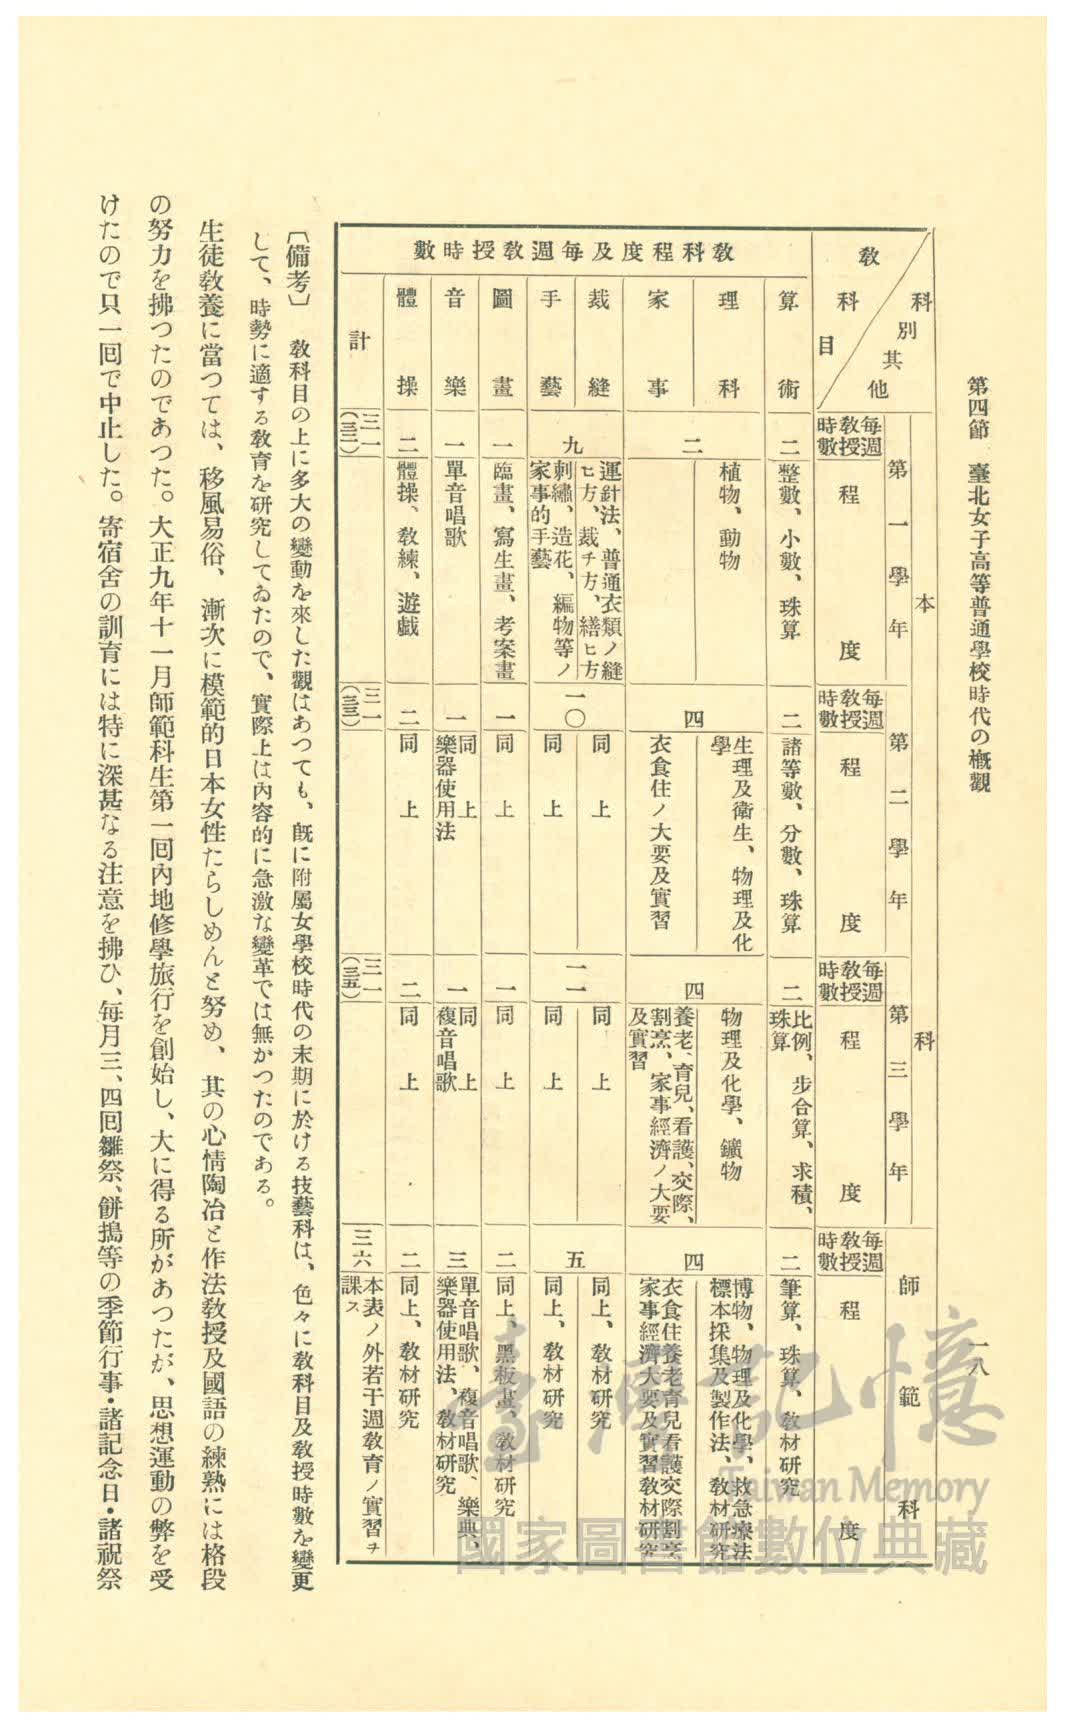 第四節　臺北女子高等普通學校時代の槪觀
一八
科別其他
敎科目
本科
師範科
第一學年
第二學年
第三學年
每週敎授時數
程度
每週敎授時數
程度
每週敎授時數
程度
每週敎授時數
程度
敎科程度及每週敎授時數
算術
二
整數、小數、珠算
二
諸等數、分數、珠算
二
比例、步合算、求積、
珠算
二
筆算、珠算、敎材硏究
理科
家事
二
植物、動物
四
生理及衞生、物理及化
學
衣食住ノ大要及實習
四
物理及化學、鑛物
養老、育兒、看護、交際、
割烹、家事經濟ノ大要
及實習
四
博物、物理及化學、救急療法
標本採集及製作法、敎材硏究
衣食住養老育兒看護交際割烹
家事經濟大要及實習敎材硏究
裁縫
手藝
九
運針法、普通衣類ノ縫
ヒ方、裁チ方、繕ヒ方
刺繡、造花、編物等ノ
家事的手藝
一〇
同上
同上
一一
同上
同上
五
同上、敎材硏究
同上、敎材硏究
圖畫
一
臨畫、寫生畫、考案畫
一
同上
一
同上
二
同上、黑板畫、敎材硏究
音樂
一
單音唱歌
一
同上
樂器使用法
一
同上
複音唱歌
三
單音唱歌、複音唱歌、樂典、
樂器使用法、敎材硏究
體操
二
體操、敎練、遊戲
二
同上
二
同上
二
同上、敎材硏究
計
三一
(三二)
三一
(三三)
三一
(三五)
三六
本表ノ外若干週敎育ノ實習ヲ
課ス
〔備考〕　敎科目の上に多大の變動を來した觀はあつても、旣に附屬女學校時代の末期に於ける技藝科は、色々に敎科目及敎授時數を變更
して、時勢に適する敎育を硏究してゐたので、實際上は內容的に急激な變革では無かつたのである。
生徒敎養に當つては、移風易俗、漸次に模範的日本女性たらしめんと努め、其の心情陶冶と作法敎授及國語の練熟には格段
の努力を拂つたのであつた。大正九年十一月師範科生第一回內地修學旅行を創始し、大に得る所があつたが、思想運動の弊を受
けたので只一回で中止した。寄宿舍の訓育には特に深甚なる注意を拂ひ、每月三、四回雛祭、餅搗等の季節行事・諸記念日・諸祝祭
臺灣記憶
Taiwan Memory
國家圖書館數位典藏